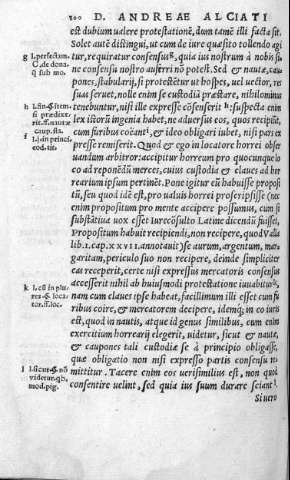 100 D. ANDREAE ALCIATI
est dubium ualere protestationē, dum tamē illi facta sit.
Solet autē distingui, ut cum de iure quæsito tollendo agi
tur, requiratur consensus, quia ius nostrum à nobis si
ne consensu nostro auferri nō potest. Sed & nautæ, cau
pones, stabularij, si protestetur ut hospes, uel uector, res
suas seruet, nolle enim se custodiā præstare, nihilominus
tenebuntur, nisi ille expresse cōsenserit h: suspecta enim
lex istorū ingenia habet, ne aduersus eos, quos recipiūt,
cum furibus coëant, & ideo obligari iubet, nisi pars ex
presse remiserit. Quod & ego in locatore horrei obser
uandum arbitror: accipitur horreum pro quocunque lo
co ad reponendū merces, cuius custodia & claues ad hor
rearium ipsum pertinet. Pone igitur eū habuisse proposi
tū, seu quod idē est, pro ualuis horrei proscripsisse (nec
enim propositum pro mente accipere possumus, cum si
substātiua uox esset Iureconsulto Latine dicendū fuisset,
Propositum habuit recipiendi, non recipere, quod Valla
lib. 1. cap. xxvii. annotauit) se aurum, argentum, mar
garitam, periculo suo non recipere, deinde simpliciter
eas receperit, certe nisi expressus mercatoris consensus
accesserit nihil ab huiusmodi protestatione iuuabitur k,
nam cum claues ipse habeat, facillimum illi esset cum fu
ribus coire, & mercatorem decipere, idemque in co iuris
est, quod in nautis, atque id genus similibus, cum enim
exercitium horrearij elegerit, uidetur, sicut & nautæ,
& caupones tali custodiæ se à principio obligasse,
quæ obligatio non nisi expresso partis consensu re
mittitur. Tacere enim eos uerisimilius est, non quod
consentire uelint, sed quia ius suum durare sciant l.
Si uero
g l. perfectum.
C. de dona.
q sub mo.
i l. j. in princi.
eod. tit.
k l. cū in plu
res. §. loca
tor. ff. loc.